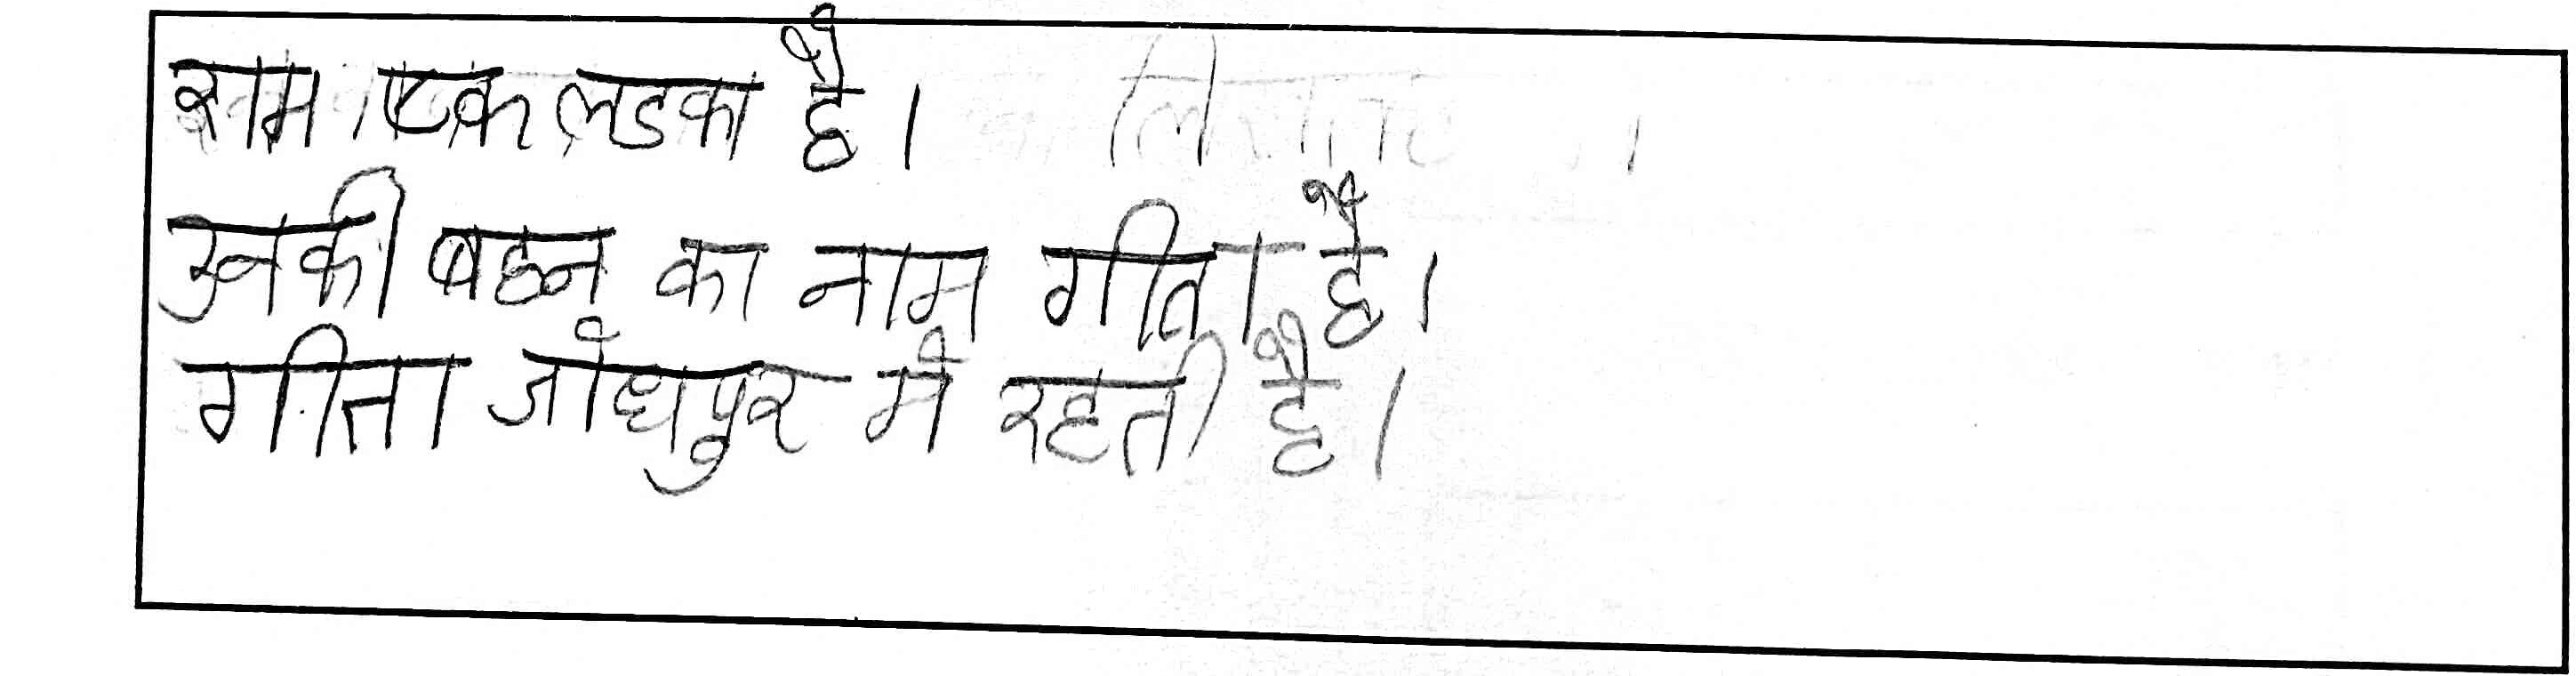 राम एक लडका है।
उनकी बहन का नाम गीता है।
गीता जोधपुर मे रहती है।